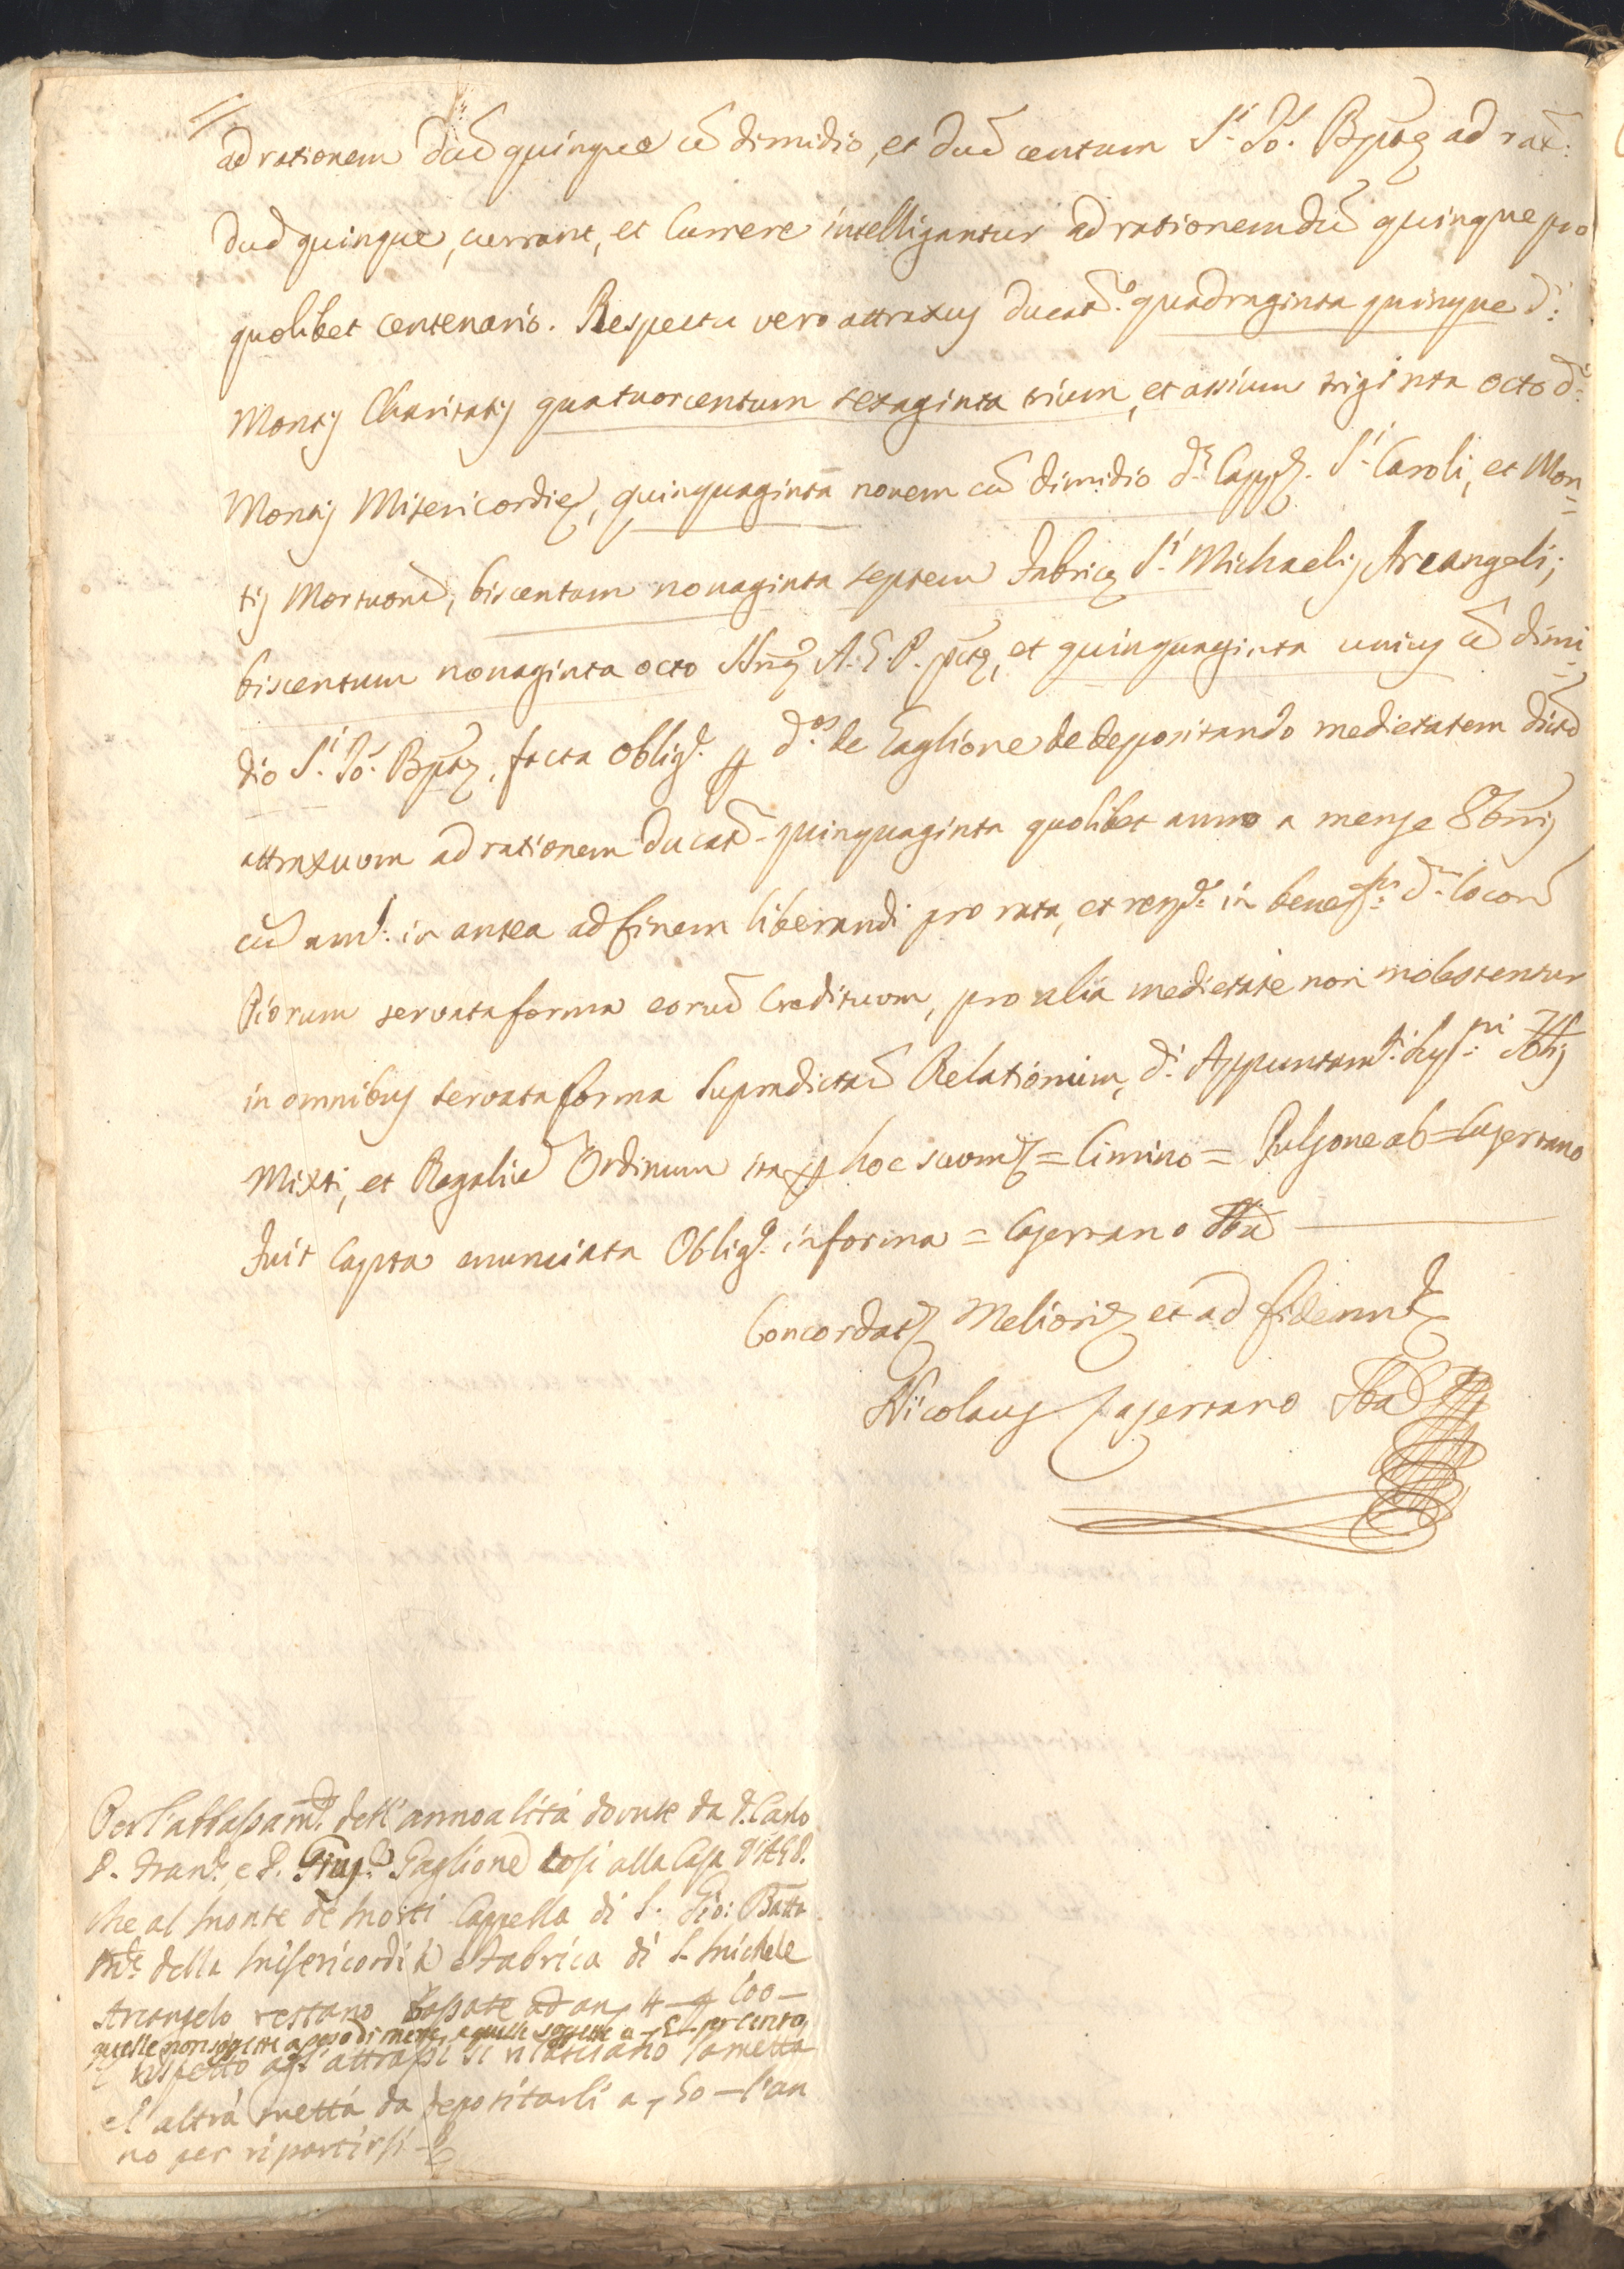 ad rationem duc̄ quinque cū dimidio, et duc̄ centum S.ti Jo. Bptę ad rat:
duc̄ quinque, currant, et Currere intelligantur ad rationem duc̄ quinque pro
quolibet centenario. Respectu vero attraxus ducat.o quadraginta quinque d.i
Montis Charitatis quatuorcentum sexaginta trium, et assium triginta octo d.i
Montis Misericordię, quinquaginta novem cū dimidio d.ę Cappę. S.ti Caroli, et Mon=
tis Mortuorū, biscentum nonaginta septem Fabricę S.ti Michaelis Arcangeli;
biscentum nonaginta octo A.G.P. et quinquaginta unius cū dimi=
dio S.ti Jo. Bptę. facta oblig.e d.os de Gaglione de depositando medietatem dictor̄
attraxuum ad rationem ducat. quinquaginta quolibet anno a mense 8bris
in antea ad finem liberandi pro rata, et in benef.m d.m locor̄
Piorum servata forma eorū Credituum, pro alia medietate non molestentur
in omnibus servata forma supradictar̄ Relationum, d.i Appuntam.ti
Mixti, et Regaliū Ordinum ita hoc suum = Cimino = Fulgone ab = Cajetano
Fuit Capta enunciata Oblig.o in forma = Cajetano Sba
Concordat Meliori et ad fidem
Nicolaus Cajetano Sba
Per l'abbassam.to dell'annoalità dovute da D. Carlo
D. Fran.o, e D. Gius.e Gaglione così alla Casa d'AGP.
che al Monte de Morti Cappella di S. Gio: Batta
M.te della Misericordia e Fabrica di S. Michele
Arcangelo restano bassate ad an. 4 - p 100 -
quelle non soggette a peso di messe, e quelle soggette a 5 - per cento
E rispetto agl'attrassi si rilasciano la mettà
e l'altra mettà da depositarli a 50 - l'an
no per ripartirsi